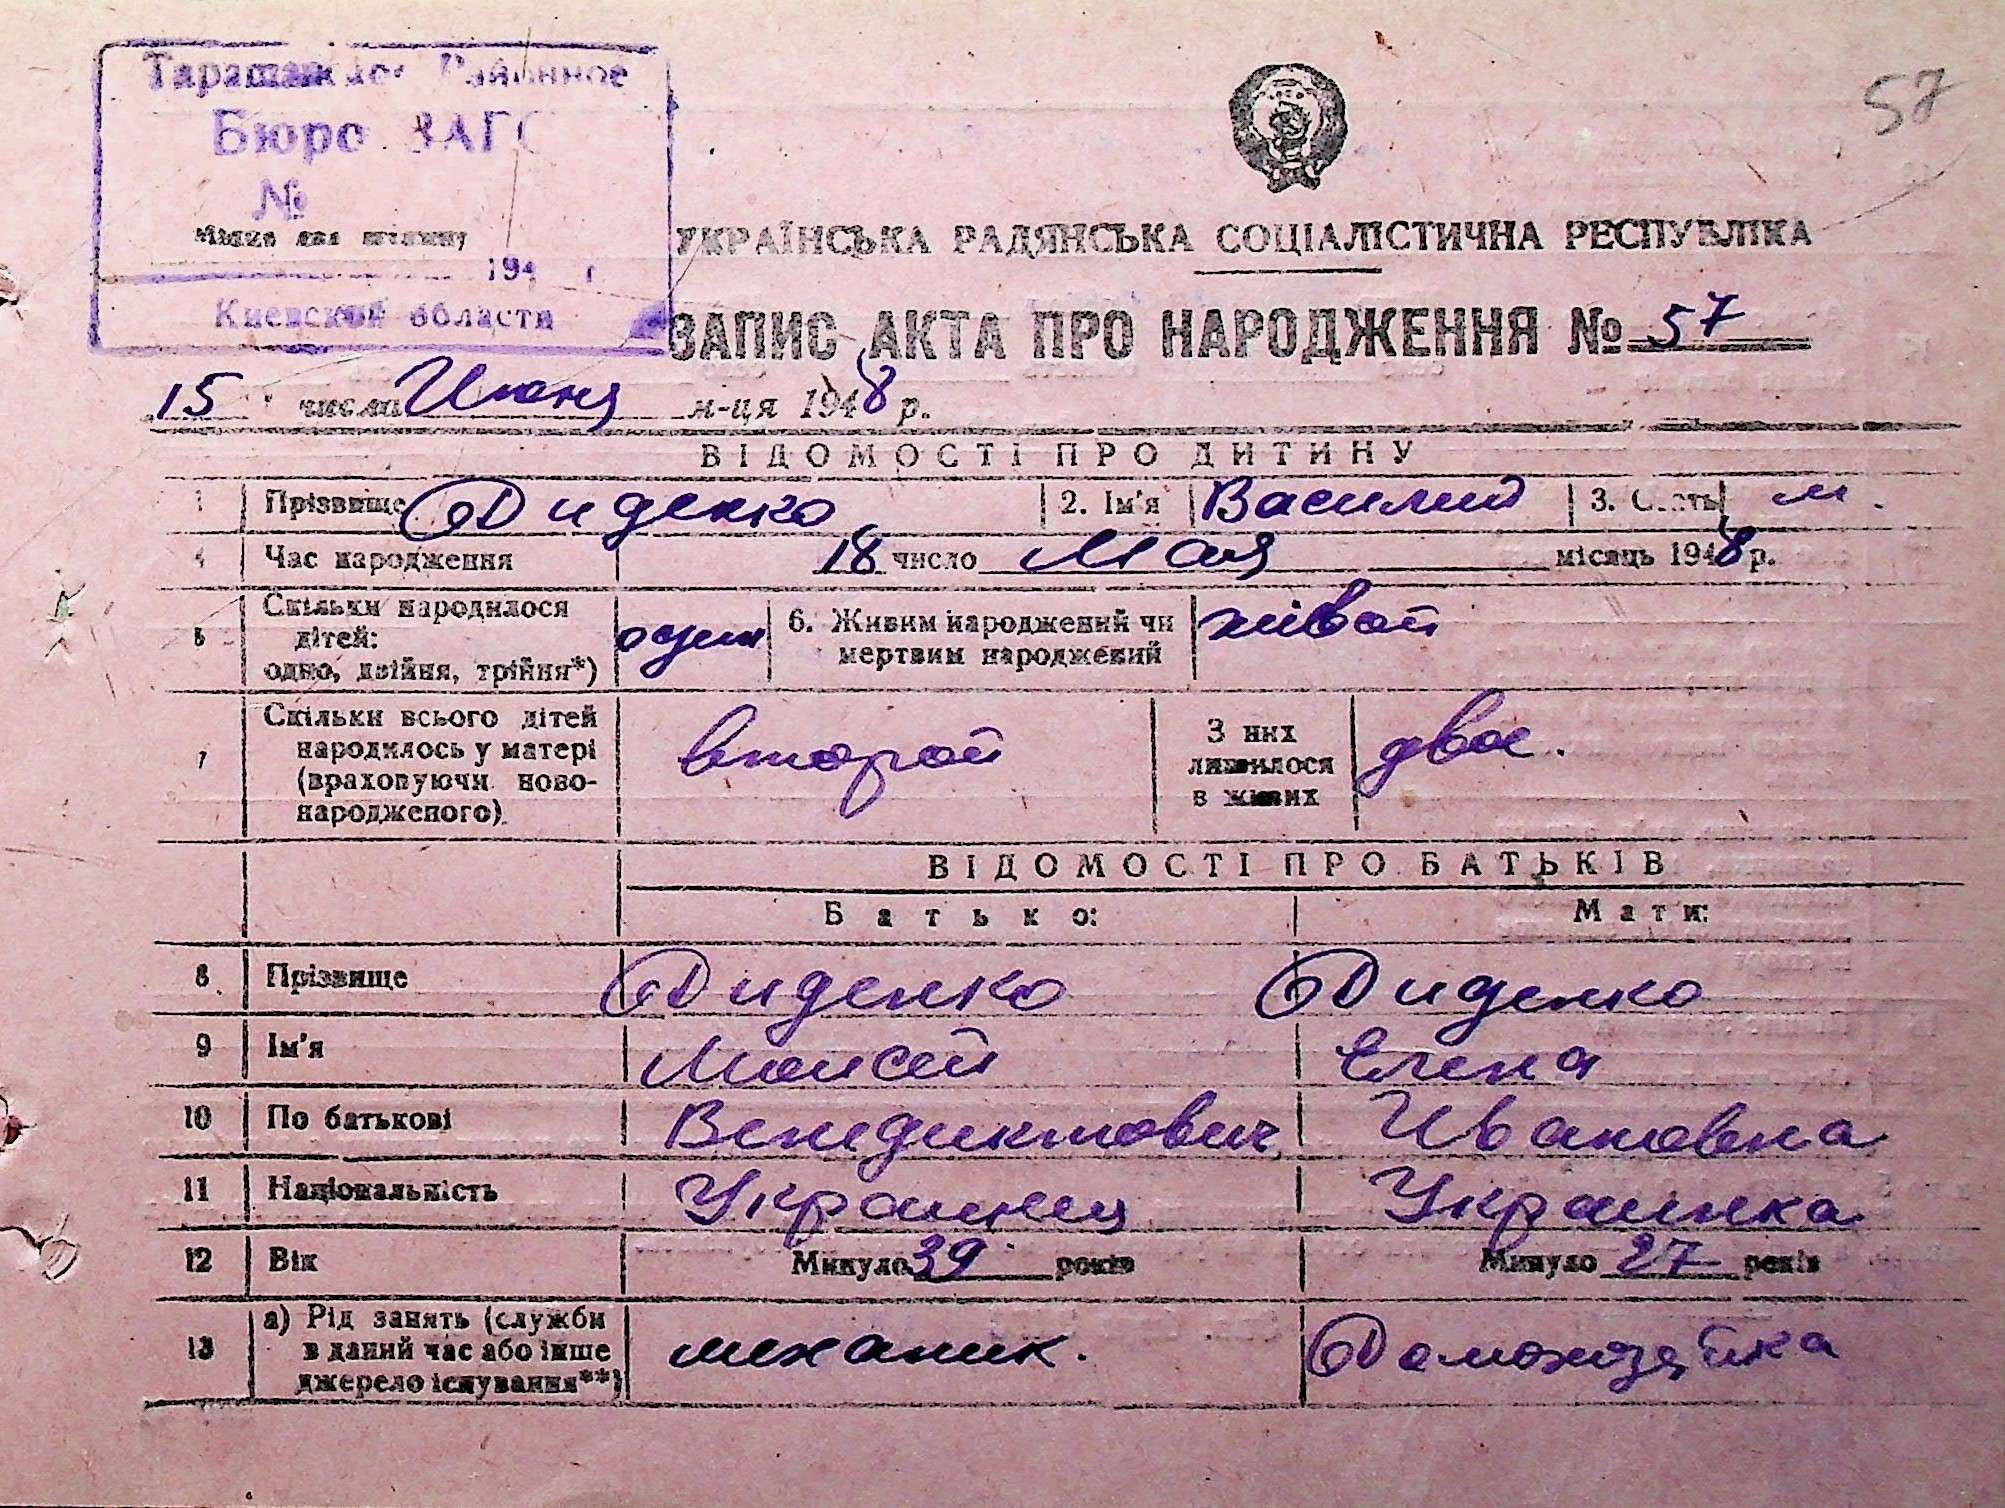 57
Таращанское Районное
Бюро ЗАГС
№
Місце для штампу
194 г
Киевской области
УКРАЇНСЬКА РАДЯНСЬКА СОЦІАЛІСТИЧНА РЕСПУБЛІКА
ЗАПИС АКТА ПРО НАРОДЖЕННЯ № 57
15 числа Июня м-ця 1948 р.
ВІДОМОСТІ ПРО ДИТИНУ
1 Прізвище Диденко 2. Ім'я Василий 3. Стать м.
4 Час народження 18 число Мая місяць 1948 р.
5 Скільки народилося дітей: одно, двійня, трійня*) один 6. Живим народжений чи мертвим народжений живой
7 Скільки всього дітей народилось у матері (враховуючи новонародженого). второй З них лишилося в живих двое.
ВІДОМОСТІ ПРО БАТЬКІВ
Батько: Мати:
8 Прізвище Диденко Диденко
9 Ім'я Моисей Елена
10 По батькові Венедиктович Ивановна
11 Національність Украинец Украинка
12 Вік Минуло 39 років Минуло 27 років
13 а) Рід занять (служби в даний час або інше джерело існування**) механик. Домохозяйка